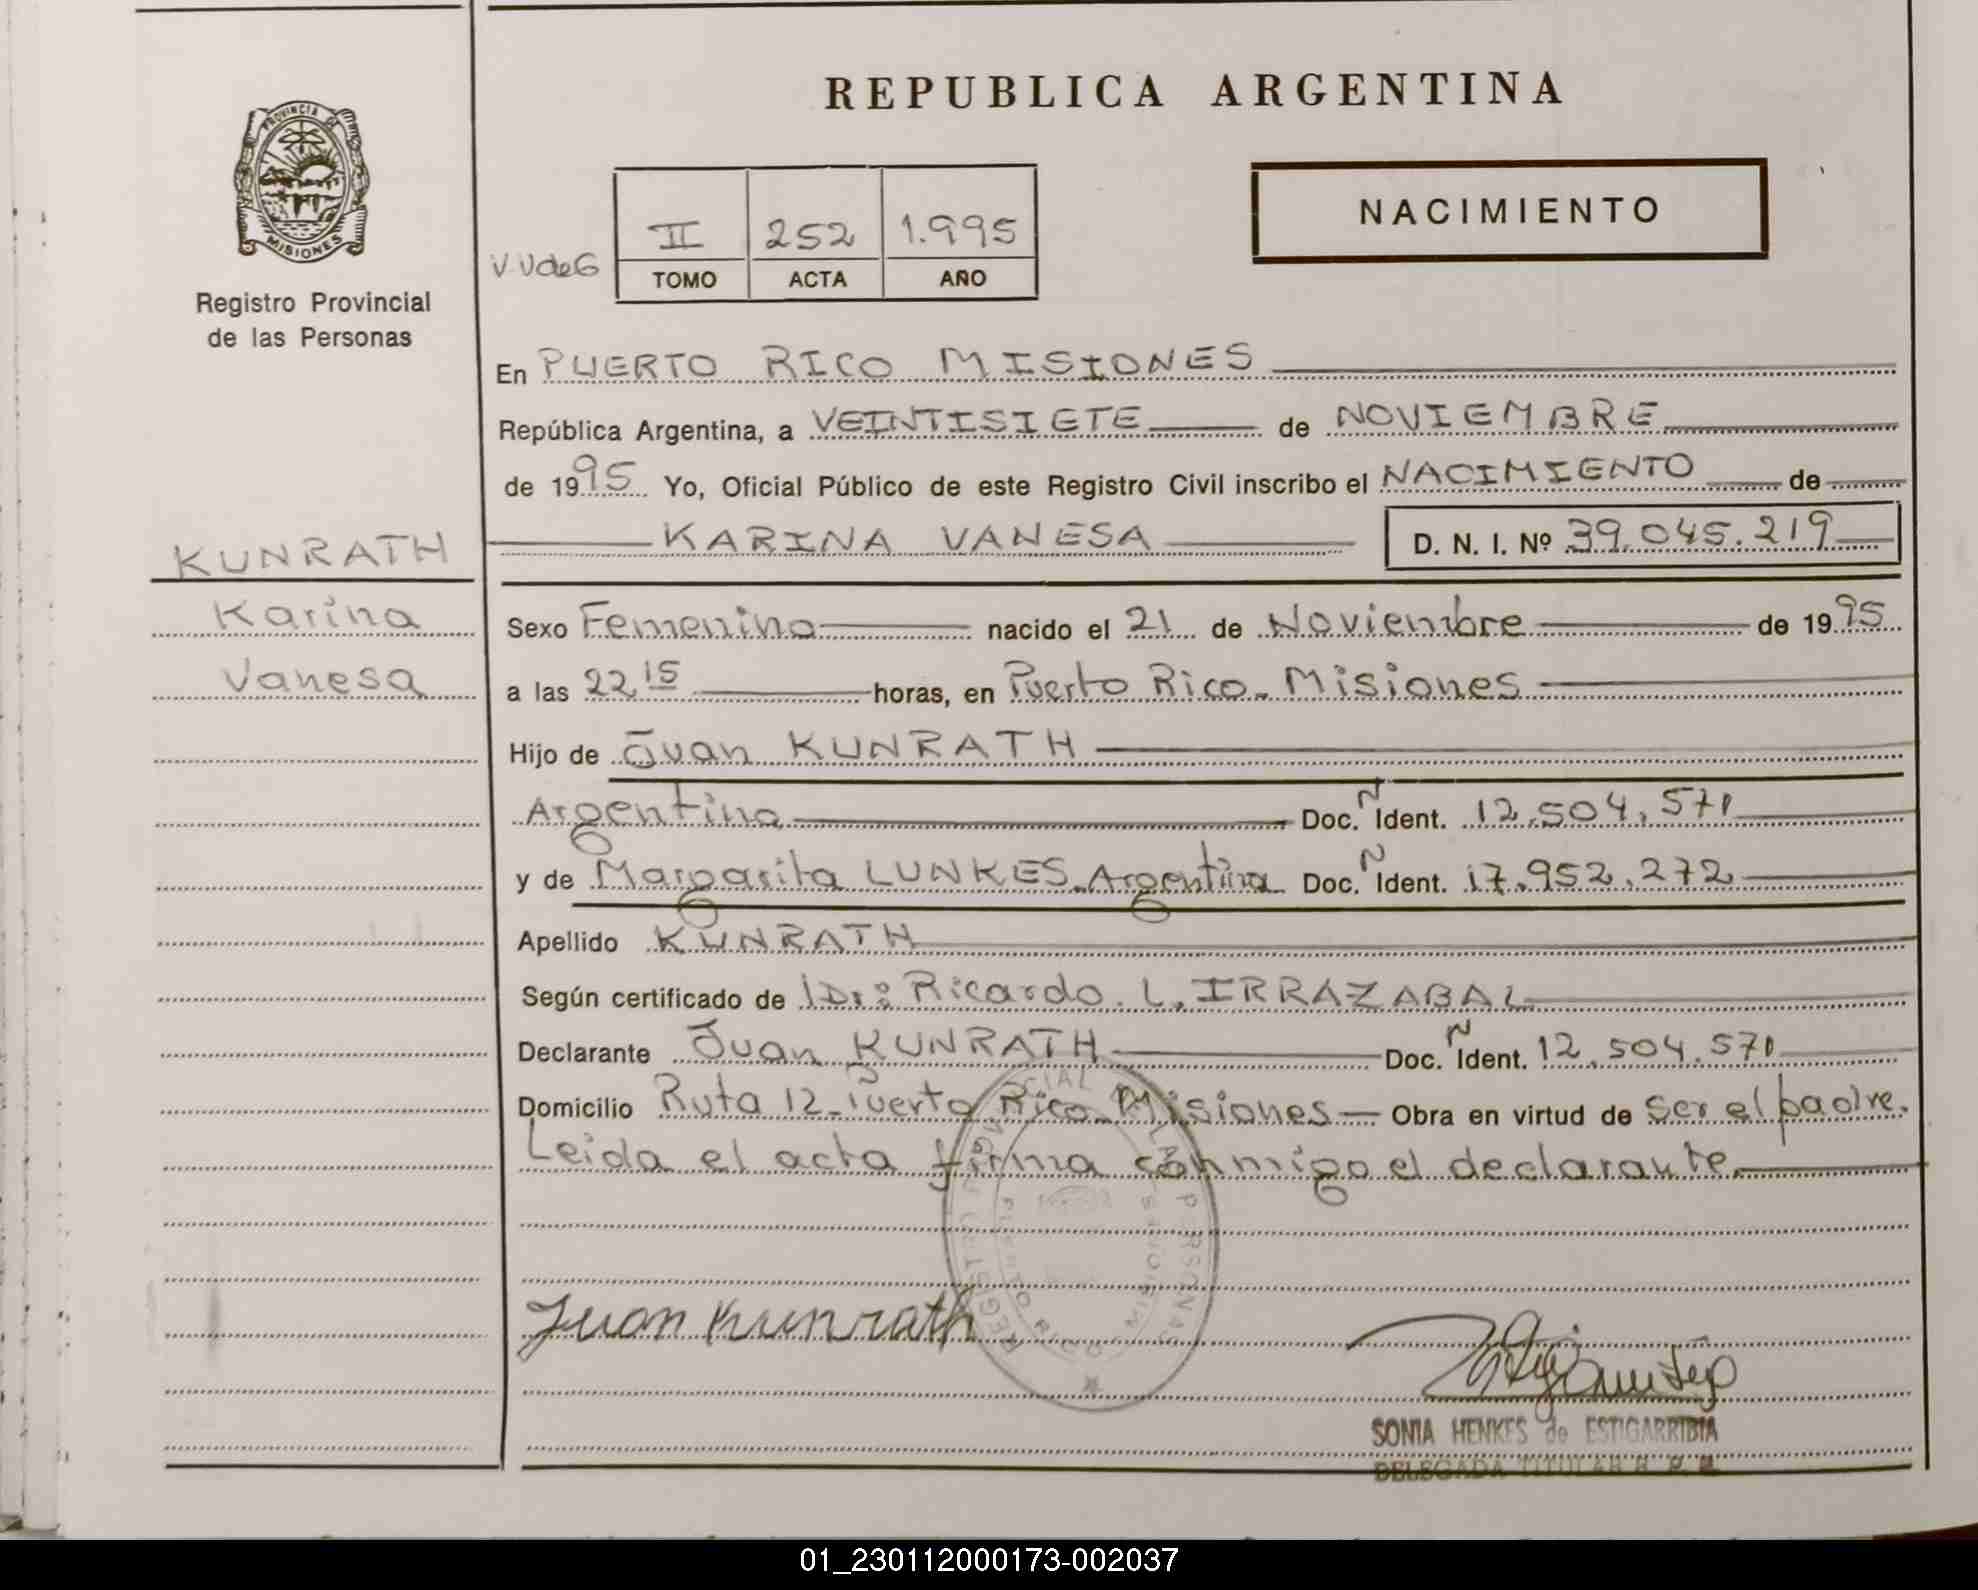 REPUBLICA ARGENTINA
PROVINCIA DE
MISIONES
Registro Provincial
de las Personas
NACIMIENTO
V.VdeG
II 252 1.995
TOMO ACTA AÑO
En PUERTO RICO MISIONES
República Argentina, a VEINTISIETE de NOVIEMBRE
de 1995 Yo, Oficial Público de este Registro Civil inscribo el NACIMIENTO de
KARINA VANESA D. N. I. Nº 39.045.219
KUNRATH
Karina
Vanesa
Sexo Femenino nacido el 21 de Noviembre de 1995
a las 22 15 horas, en Puerto Rico - Misiones
Hijo de Juan KUNRATH
Argentino Doc. Ñ Ident. 12.504.571
y de Margarita LUNKES - Argentina Doc. Ñ Ident. 17.952.272
Apellido KUNRATH
Según certificado de Dr: Ricardo. L. IRRAZABAL
Declarante Juan KUNRATH Doc. Ñ Ident. 12.504.571
Domicilio Ruta 12 - Puerto Rico - Misiones - Obra en virtud de ser el padre.
Leida el acta firma conmigo el declarante.
REGISTRO PROVINCIAL LAS PERSONAS
PUERTO RICO MISIONES
Juan Kunrath
SONIA HENKES de ESTIGARRIBIA
DELEGADA TITULAR R. P. P.
01_230112000173-002037